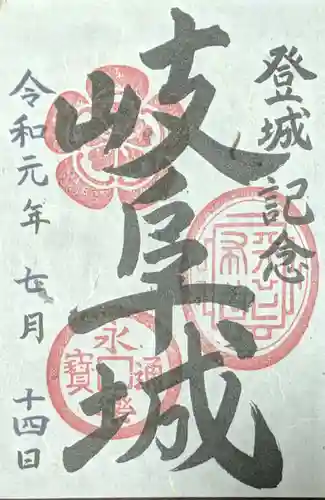 登城記念
岐阜城
令和元年 七月 十四日
永
通
寶